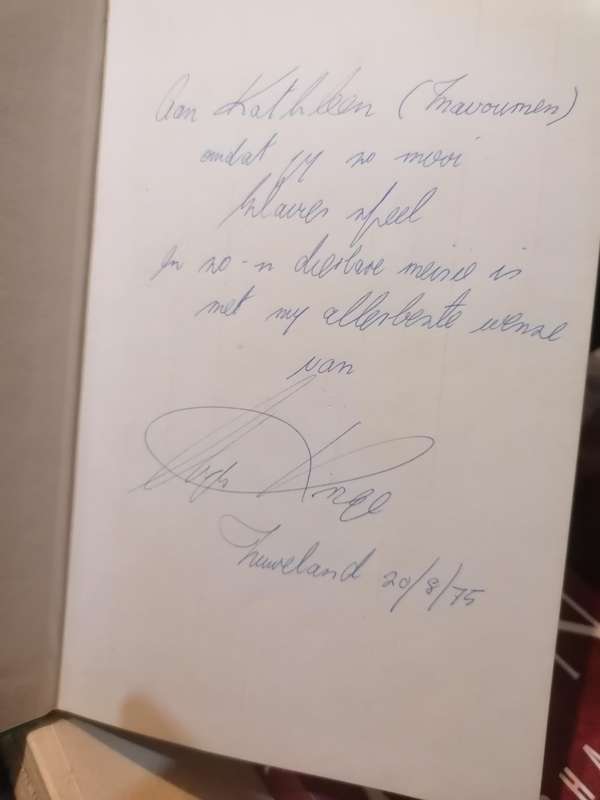 Aan Kathleen (
omdat jy so mooi
klavier speel
en so-n dierbare meisie is
met my allerbeste wense
van
20/8/75